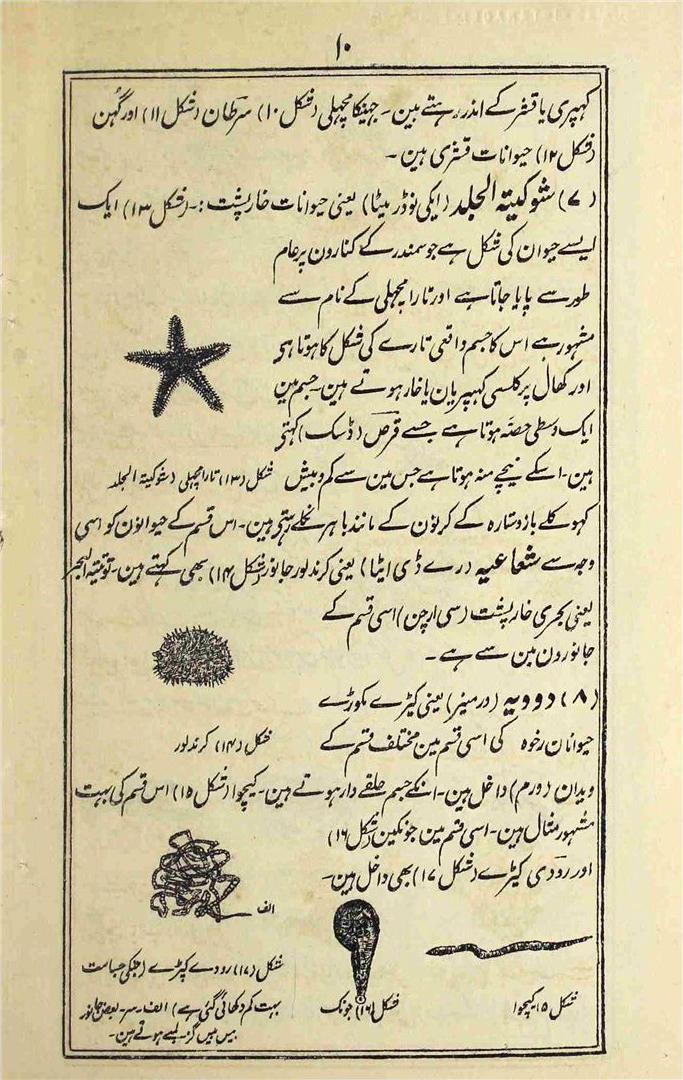 ۱۰
کہپری یا قشر کے اندر رہتے ہین ۔ جہینگا مچہلی (شکل ۱۰) سرطان (شکل ۱۱) اور گُہن
(شکل ۱۲) حیوانات قشری ہین ۔
(۷) شوکیتہ الجلد (ایکی نوڈر میٹا) یعنی حیوانات خارپشت :۔ (شکل ۱۳) ایک
ایسے حیوان کی شکل ہے جو سمندر کے کنارون پر عام
طور سے پایا جاتا ہے اور تارا مچہلی کے نام سے
مشہور ہے اس کا جسم واقعی تارے کی شکل کا ہوتا ہی
اور کھال پر کلسی کہپریان یا خار ہوتے ہین ۔ جسم مین
ایک وسطی حصّہ ہوتا ہے جسے قرص (ڈسک) کہتی
ہین ۔ اسکے نیچے منہ ہوتا ہے جس مین سے کم و بیش
شکل (۱۳) تارا مچہلی (شوکیتہ الجلد
کہوکلے بازو ستارہ کے کرنون کے مانند باہر نکلے رہتی ہین ۔ اس قسم کے حیوانون کو اسی
وجہ سے شعاعیہ (رے ڈی ایٹا) یعنی کرندلور جانور (شکل ۱۴) بھی کہتے ہین ۔ البحر
یعنی بحری خارپشت (سی ارچن) اسی قسم کے
جانورون مین سے ہے ۔
(۸) دودیہ (ورمیز) یعنی کیڑے مکوڑے
حیوانان رخوہ کی اسی قسم مین مختلف قسم کے
شکل (۱۴) کرندلور
دیدان (ورم) داخل ہین ۔ انکے جسم حلقے دار ہوتے ہین ۔ کیچوا (شکل ۱۵) اس قسم کی بہت
مشہور مثال ہین ۔ اسی قسم مین جونکین (شکل ۱۶)
اور رودی کیڑے (شکل ۱۷) بھی داخل ہین ۔
الف
شکل ۱۵ کیچوا
شکل (۱۶) جونک
شکل (۱۷) رودے کیڑے (جنکی جسامت
بہت کم دکھائی گئی ہے) الف ۔ سر ۔ بعض جانور
بیس بیس گز لمبے ہوتے ہین ۔